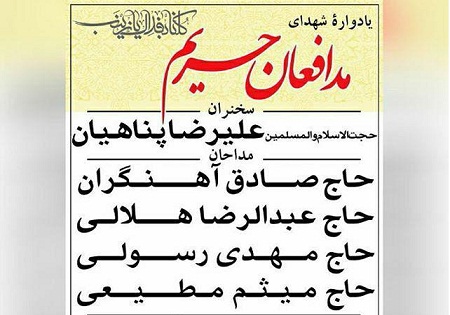 یادوارۀ شهدای
مدافعان حریم
سخنران
حجت‌الاسلام‌والمسلمین علیرضا پناهیان
مداحان
حاج صادق آهنگران
حاج عبدالرضا هلالی
حاج مهدی رسولی
حاج میثم مطیعی